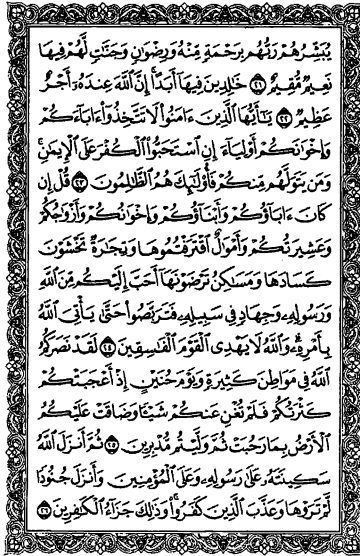 يُبَشِّرُهُمْ رَبُّهُم بِرَحْمَةٍ مِّنْهُ وَرِضْوَٰنٍ وَجَنَّٰتٍ لَّهُمْ فِيهَا
نَعِيمٌ مُّقِيمٌ ٢١ خَٰلِدِينَ فِيهَآ أَبَدًا إِنَّ ٱللَّهَ عِندَهُۥٓ أَجْرٌ
عَظِيمٌ ٢٢ يَٰٓأَيُّهَا ٱلَّذِينَ ءَامَنُوا۟ لَا تَتَّخِذُوٓا۟ ءَابَآءَكُمْ
وَإِخْوَٰنَكُمْ أَوْلِيَآءَ إِنِ ٱسْتَحَبُّوا۟ ٱلْكُفْرَ عَلَى ٱلْإِيمَٰنِ
وَمَن يَتَوَلَّهُم مِّنكُمْ فَأُو۟لَٰٓئِكَ هُمُ ٱلظَّٰلِمُونَ ٢٣ قُلْ إِن
كَانَ ءَابَآؤُكُمْ وَأَبْنَآؤُكُمْ وَإِخْوَٰنُكُمْ وَأَزْوَٰجُكُمْ
وَعَشِيرَتُكُمْ وَأَمْوَٰلٌ ٱقْتَرَفْتُمُوهَا وَتِجَٰرَةٌ تَخْشَوْنَ
كَسَادَهَا وَمَسَٰكِنُ تَرْضَوْنَهَآ أَحَبَّ إِلَيْكُم مِّنَ ٱللَّهِ
وَرَسُولِهِۦ وَجِهَادٍ فِى سَبِيلِهِۦ فَتَرَبَّصُوا۟ حَتَّىٰ يَأْتِىَ ٱللَّهُ
بِأَمْرِهِۦ وَٱللَّهُ لَا يَهْدِى ٱلْقَوْمَ ٱلْفَٰسِقِينَ ٢٤ لَقَدْ نَصَرَكُمُ
ٱللَّهُ فِى مَوَاطِنَ كَثِيرَةٍ وَيَوْمَ حُنَيْنٍ إِذْ أَعْجَبَتْكُمْ
كَثْرَتُكُمْ فَلَمْ تُغْنِ عَنكُمْ شَيْـًٔا وَضَاقَتْ عَلَيْكُمُ
ٱلْأَرْضُ بِمَا رَحُبَتْ ثُمَّ وَلَّيْتُم مُّدْبِرِينَ ٢٥ ثُمَّ أَنزَلَ ٱللَّهُ
سَكِينَتَهُۥ عَلَىٰ رَسُولِهِۦ وَعَلَى ٱلْمُؤْمِنِينَ وَأَنزَلَ جُنُودًا
لَّمْ تَرَوْهَا وَعَذَّبَ ٱلَّذِينَ كَفَرُوا۟ وَذَٰلِكَ جَزَآءُ ٱلْكَٰفِرِينَ ٢٦